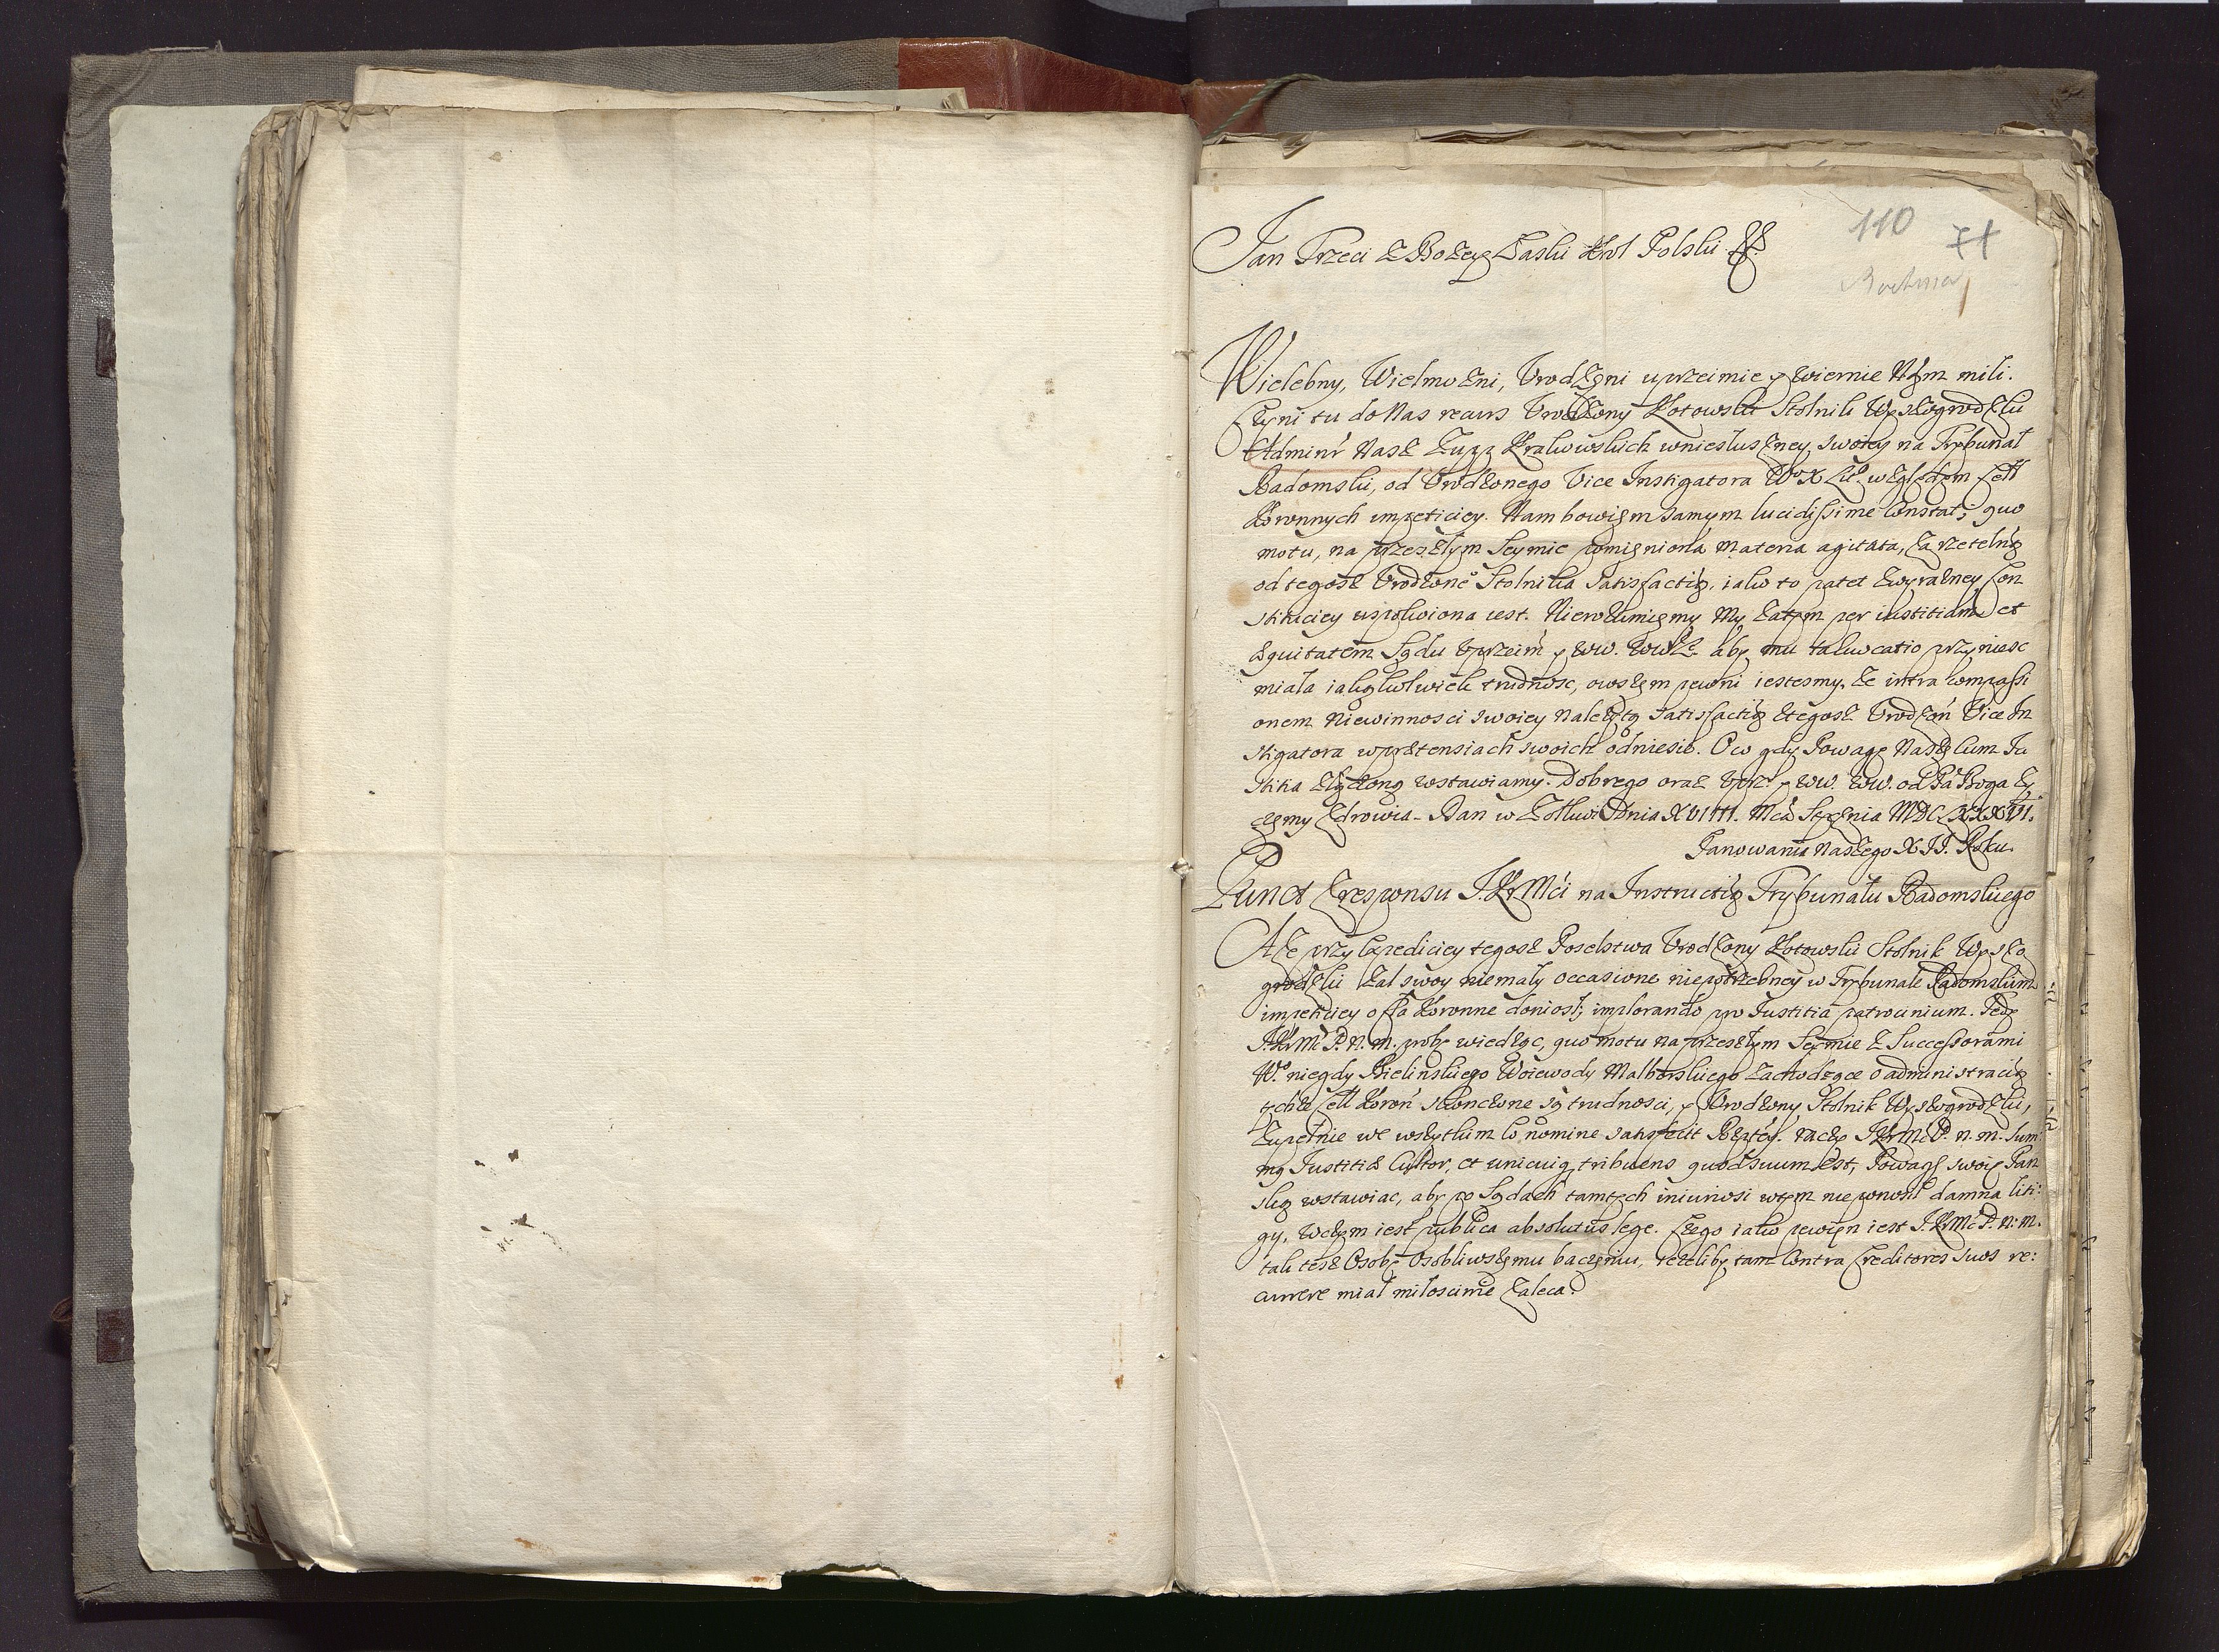 110 71
Bochnia
Jan Trzeci z Bożey Łaski Krol Polski &&.
Wielebny, Wielmożni, Vrodzeni uprzeimie y wiernie Nam mili.
Czyni tu do Nas recurs Vrodzony Kotowski Stolnik Wyszogrodzki
Adminr Nasz Zupp Krakowskich wniesłuszney swoiey na Trybunał
Radomski, od Vrodzonego Vice Instigatora W. X. Lit. względem Cełł
Koronnych impeticiey. Nam bowiem samym lucidissime constat, quo
motu, na przeszłym Seymie pomieniona materia agitata, za rzetelną
od tegosz Vrodzone° Stolnika Satisfactią, iako to patet z wyrazney Con
stituciey uspokoiona iest. Nierozumiemy My zatym per iustitiam et
æquitatem Sądu Vprzeim y ww. ww. aby mu ta avocatio przyniesc
miała iakążkolwiek trudnosc, owszem pewni iestesmy, że intra compassi
onem Niewinnosci swoiey należytą Satisfactią z tegosz Vrodzon Vice In
stigatora w prætensiach swoich odniesie. O co gdy Powagę Naszę cum Ju
stitia złączoną wstawiamy. Dobrego oraz Vprz. y ww. ww. od Pa Boga zy
czemy zdrowia. Dan w Zołkwi Dnia XVIII. Mca Stycznia MDCLXXXVI.
Panowania Naszego XII. Roku.
Punct z responsu J.KrMci na Instructią Trybunału Radomskiego
A że przy expediciey tegosz Poselstwa Vrodzony Kotowski Stolnik Wyszo
grodzki żal swoy niemały occasione niepotrzebney w Trybunale Radomskim
impeticiey o Cła Koronne doniosł; implorando pro Justitia patrocinium. Tedy
J.KrMc P. N. M. probe wiedząc, quo motu na przeszłym Seymie z Successorami
W° niegdy Bielinskiego Woiewody Malborskiego zachodzące o administracią
tychże Cełł Koron skonczone są trudnosci, y Vrodzony Stolnik Wyszogrodzki,
Zupełnie we wszytkim eo nomine satisfecit Rzptey. raczy J.KrMc P. n. m. Sum
mę Justitiæ Cultor, et unicuiq tribuens quod suum est, Powagę swoię Pan
ską wstawiac, aby po Sądach tamtych iniuriosi wtym nie ponosił damna liti:
gy, w czym iest publica absolutus lege. Czego iako pewien iest J.KrMc P. n. m.
tak tesz Osobę Osobliwszemu baczeniu, ieżeliby tam contra Creditores suos re:
currere miał miłosciwie zaleca.